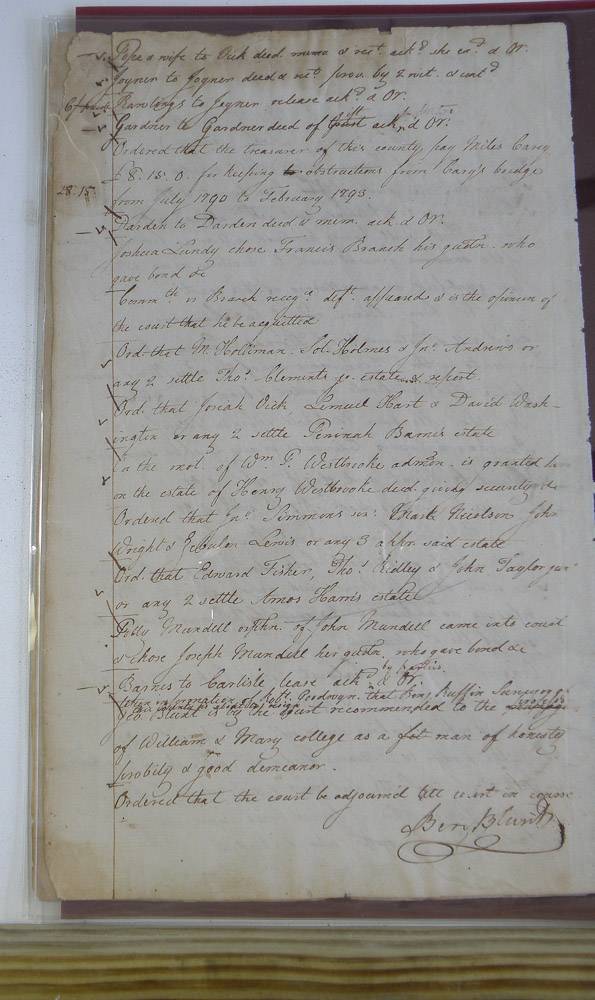 Pope & wife to Vick deed mema & rect. ackd. she exd. & Or.
Joyner to Joyner deed & rect. prov. by 2 wit. & contd
Rawlings to Joyner release ackd. & Or.
Gardner to Gardner deed of gift ackd. & Or.
Ordered that the treasurer of this county pay Miles Carey
£8.15.0. for keeping obstructions from Cary's bridge
28.15
from July 1790 to February 1793.
Darden to Darden deed & mem. ack. & Or.
Joshua Lundy chose Francis Branch his guardn. who
gave bond &c
Commth. vs Branch recogs. deft. appeared & is the opinion of
the court that he be acquitted
Ord. that M. Holliman. Sol. Holmes & Jno. Andrews or
any 2 settle Thos. Clements estate & report
Ord. that Josiah Vick Lemuel Hart & David Wash-
ington or any 2 settle Peninah Barnes estate
On the mot. of Wm. P. Westbrooke admon. is granted
on the estate of Henry Westbrooke decd. giving security
Ordered that Jno. Simmons senr. Mark Nicolson John
Wright & Zebulon Lewis or any 3 appr. said estate
Ord. that Edward Fisher, Thos. Ridley & John Taylor junr
or any 2 settle Amos Harris estate
Polly Mundell orphn. of John Mundell came into court
& chose Joseph Mundell her guardn. who gave bond &c
Barnes to Carlisle lease ackd. by parties & Or.
is by the court recommended to the
of William & Mary college as a fit man of honesty
probity & good demeanor.
Ordered that the court be adjourned till court in course
Ben Blunt